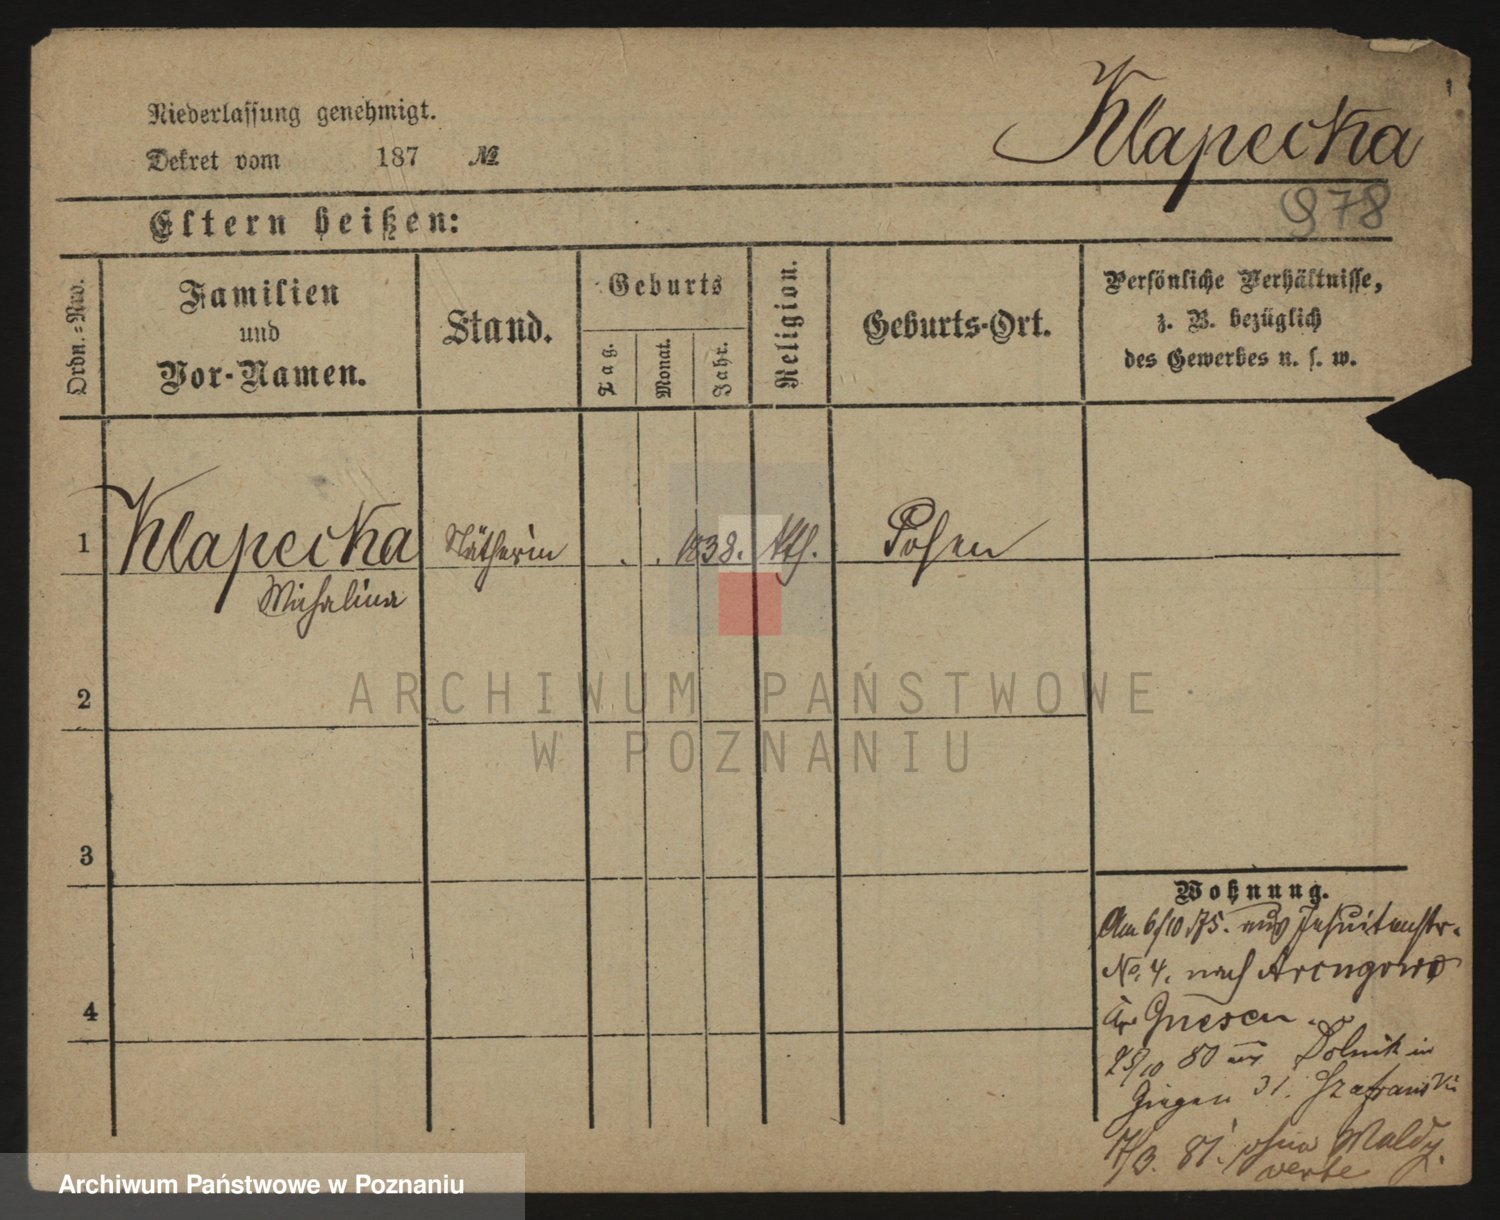 Niederlassung genehmigt.
Dekret vom 187 №
Klapecka
978
Eltern heißen:
Ordn.=Nro.
Familien
und
Vor-Namen.
Stand.
Geburts
Tag.
Monat.
Jahr.
Religion.
Geburts-Ort.
Persönliche Verhältnisse,
z. B. bezüglich
des Gewerbes u. s. w.
1 Klapecka Nätherin . . 1838. Kth. Posen
Michalina
2
3
4
Wohnung.
Am 6/10 75. aus Jesuitenstr.
No. 4. nach Arcugowo
Kr Gnesen.
25/10 80 aus Dolnik in
31. Szafranski
17/3. 81. ohne
ARCHIWUM PAŃSTWOWE
W POZNANIU
Archiwum Państwowe w Poznaniu